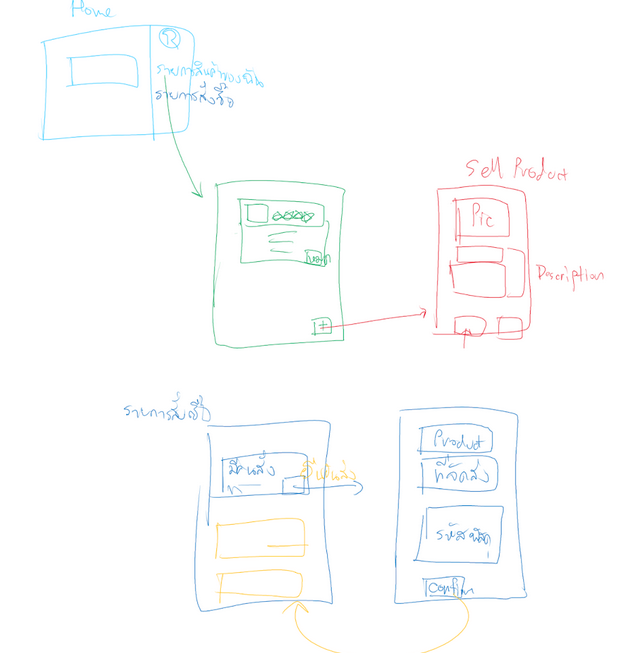 Home
R
รายการสินค้าของฉัน
รายการสั่งซื้อ
Sell Product
Pic
Description
รายการสั่งซื้อ
มีคนสั่ง
Product
ที่จัดส่ง
รหัสพัสดุ
Confirm